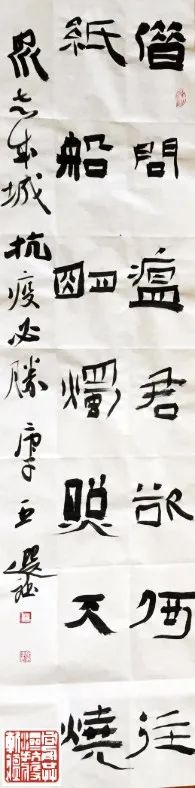 借問瘟君欲何往
紙船明燭照天燒
眾志成城抗疫必勝庚子